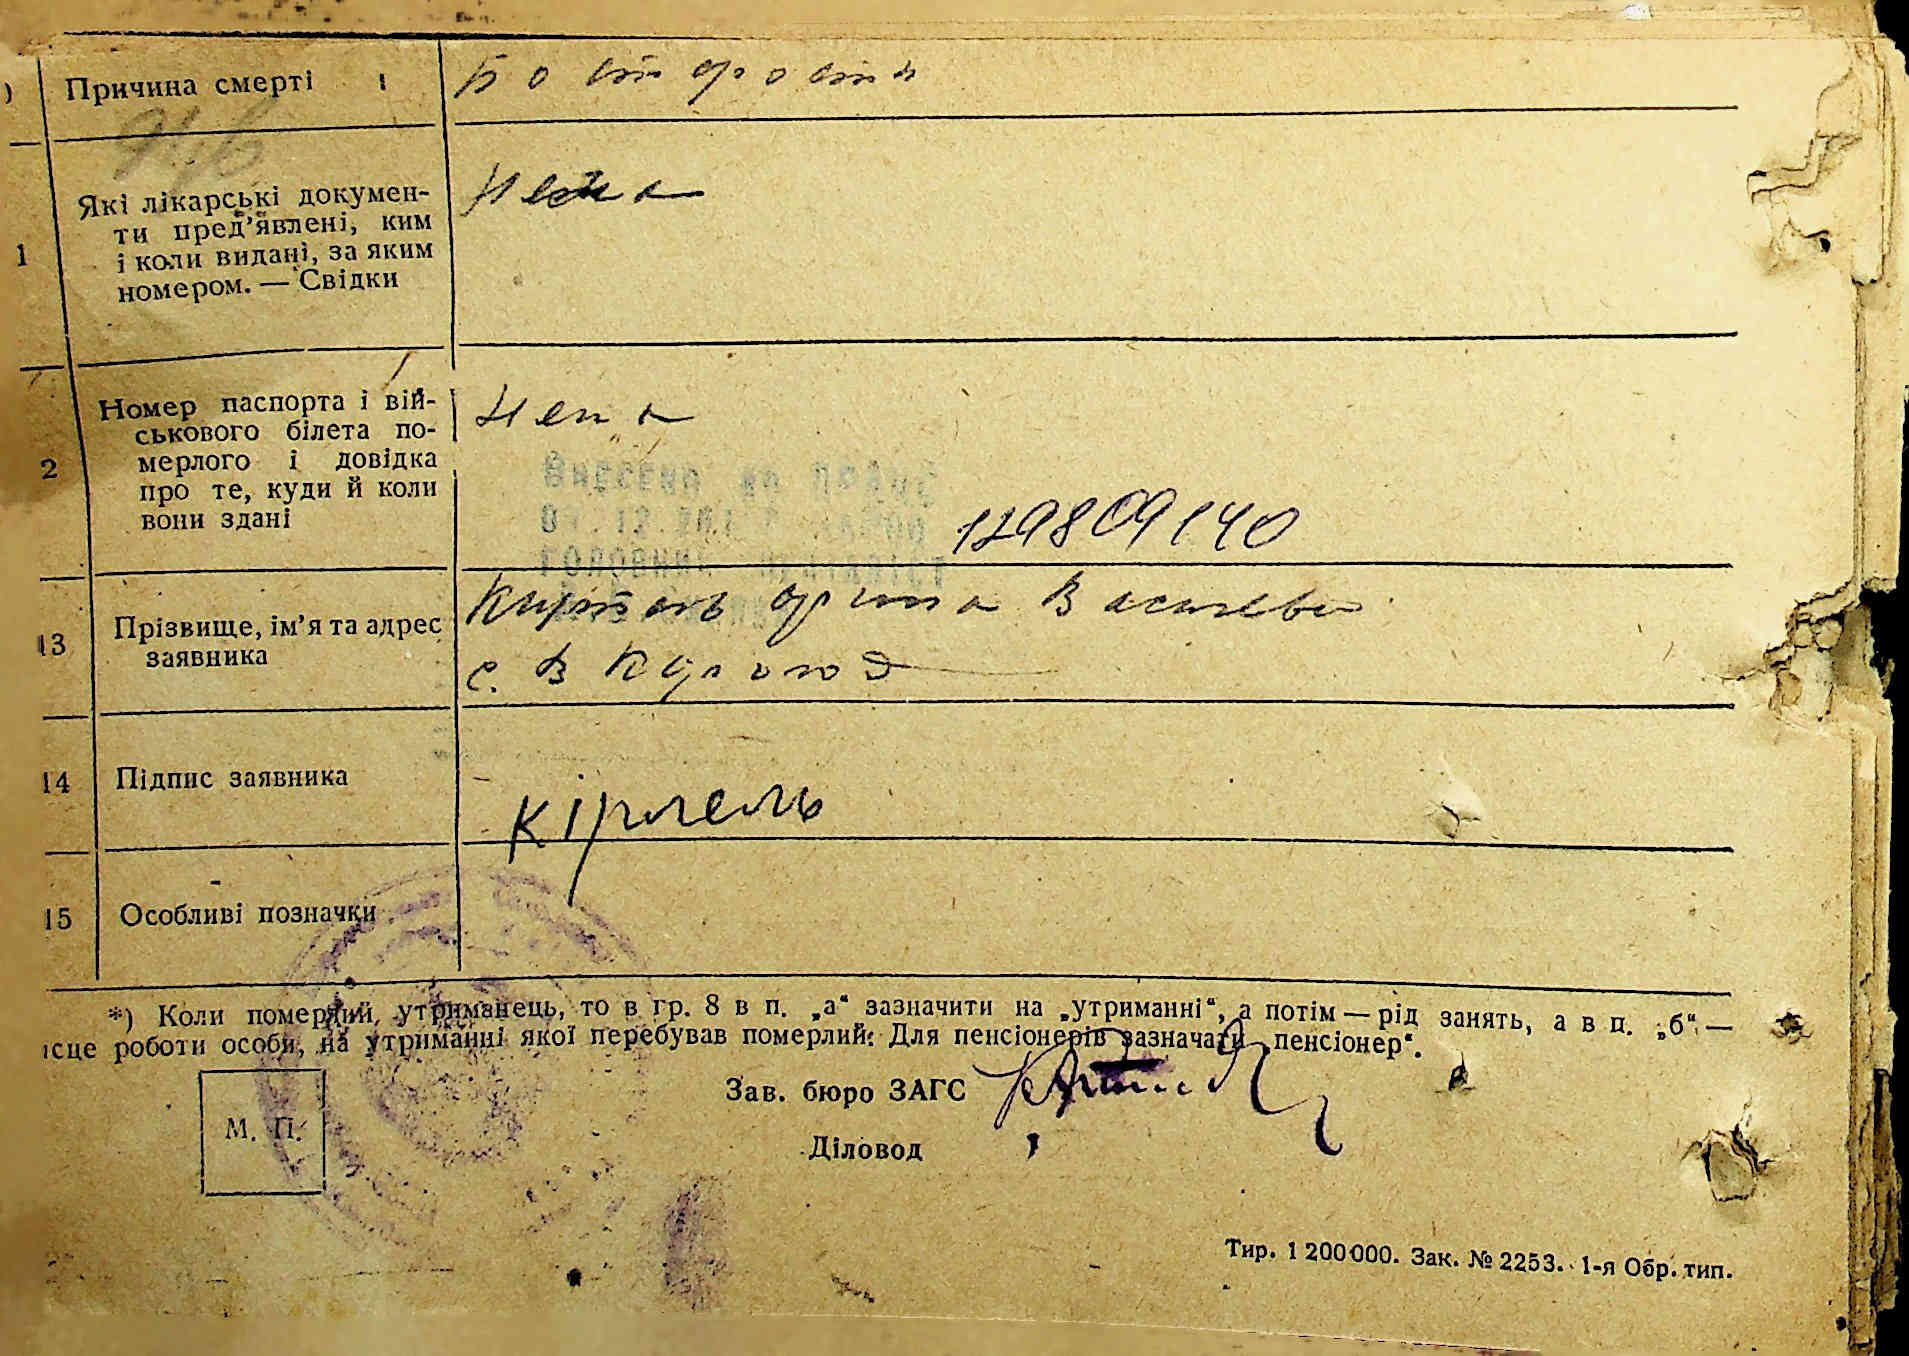 Причина смерті
Які лікарські докумен-
ти пред’явлені, ким
1 і коли видані, за яким
номером. — Свідки
Нема
Номер паспорта і вій-
ськового білета по-
2 мерлого і довідка
про те, куди й коли
вони здані
Нема
Внесено до
129809140
13 Прізвище, ім’я та адрес
заявника
с. В
14 Підпис заявника
15 Особливі позначки
*) Коли померлий, утриманець, то в гр. 8 в п. „а“ зазначити на „утриманні“, а потім — рід занять, а в п. „б“ —
ісце роботи особи, на утриманні якої перебував померлий. Для пенсіонерів зазначати „пенсіонер“.
М. П.
Зав. бюро ЗАГС
Діловод
Тир. 1 200 000. Зак. № 2253. 1-я Обр. тип.